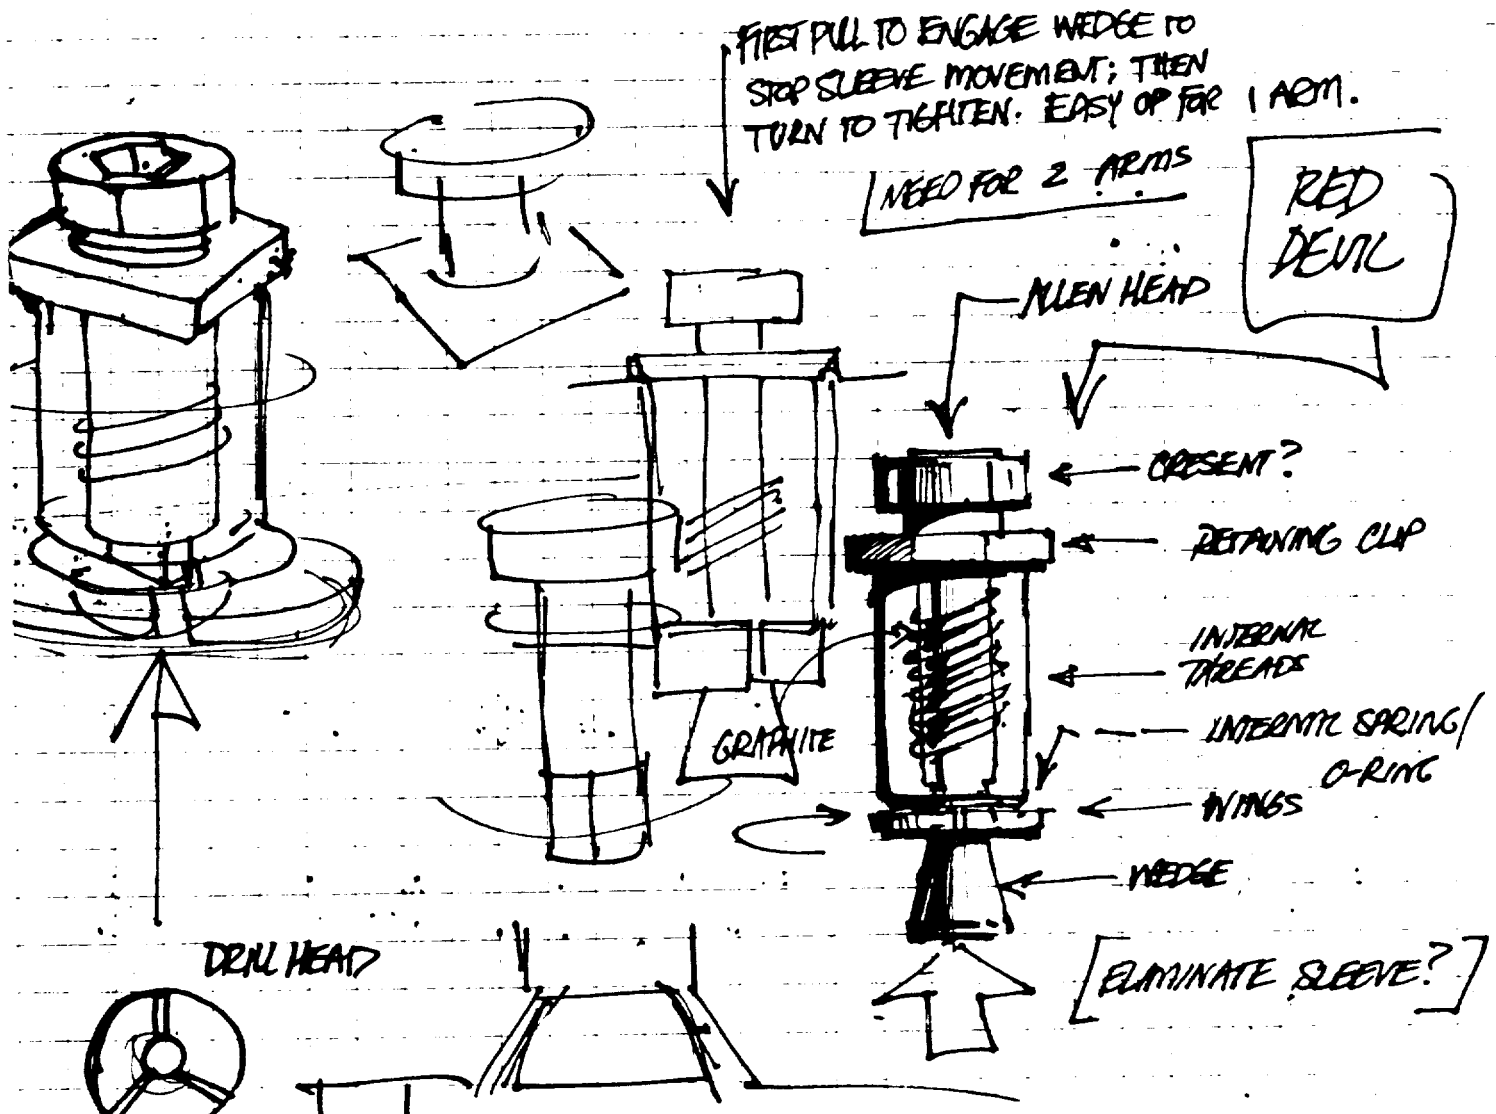 FIRST PULL TO ENGAGE WEDGE TO
STOP SLEEVE MOVEMENT; THEN
TURN TO TIGHTEN. EASY OP FOR 1 ARM.
NEED FOR 2 ARMS
RED
DEVIL
ALLEN HEAD
CRESENT?
RETAINING CLIP
INTERNAL
THREADS
INTERNAL SPRING/
O-RING
GRAPHITE
WINGS
WEDGE
DRILL HEAD
[ELIMINATE SLEEVE?]